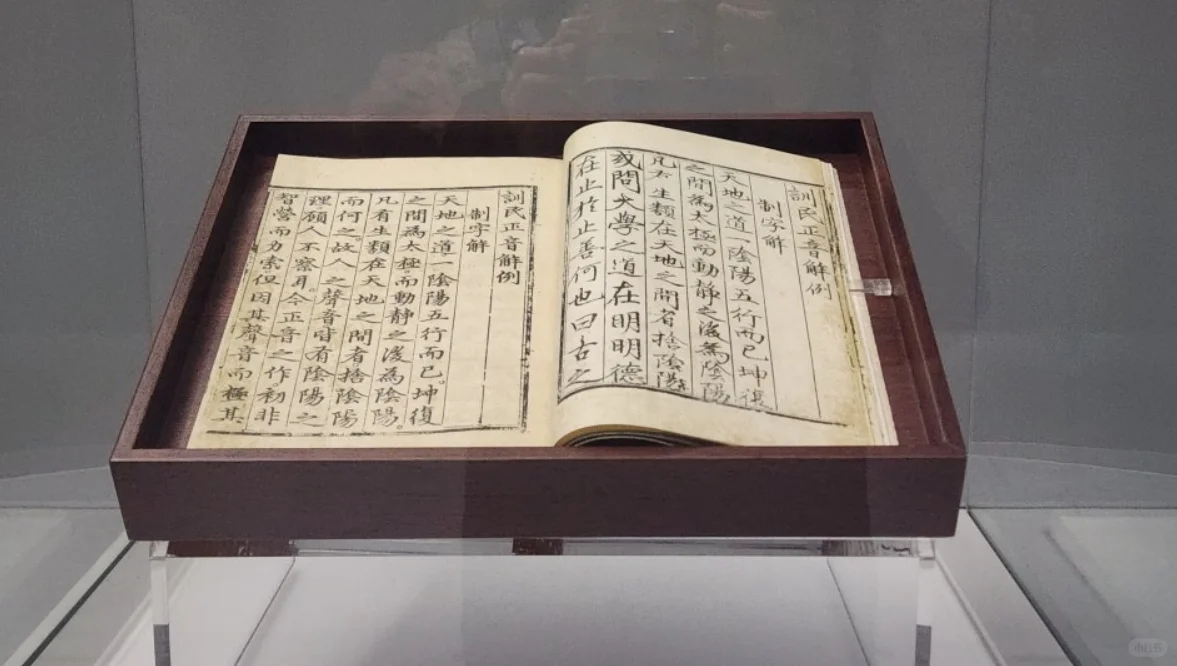 訓民正音解例
制字解
天地之道一陰陽五行而已坤復
之間為太極而動靜之後為陰陽
凡有生類在天地之間者捨陰陽
或問大學之道在明明德
在止於止善何也曰古之
訓民正音解例
制字解
天地之道一陰陽五行而已。坤復
之間為太極。而動靜之後為陰陽。
凡有生類在天地之間者。捨陰陽
而何之。故人之聲音皆有陰陽之
理。顧人不察耳。今正音之作。初非
智營而力索。但因其聲音而極其
小红书